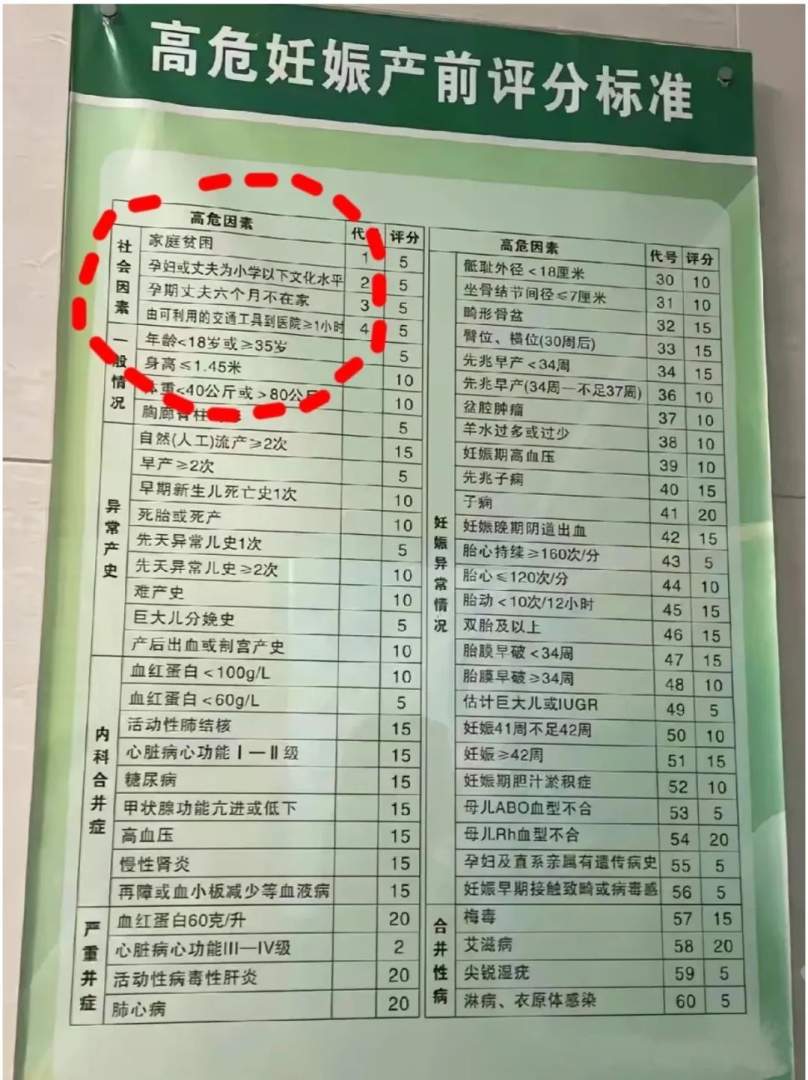 高危妊娠产前评分标准
高危因素 代 评分
社会因素
家庭贫困 1 5
孕妇或丈夫为小学以下文化水平 2 5
孕期丈夫六个月不在家 3 5
由可利用的交通工具到医院≥1小时 4 5
一般情况
年龄<18岁或≥35岁 5
身高≤1.45米 10
体重<40公斤或>80公斤 10
胸廊脊柱 5
异常产史
自然(人工)流产≥2次 15
早产≥2次 5
早期新生儿死亡史1次 10
死胎或死产 10
先天异常儿史1次 5
先天异常儿史≥2次 10
难产史 10
巨大儿分娩史 5
产后出血或剖宫产史 10
内科合井症
血红蛋白<100g/L 10
血红蛋白<60g/L 5
活动性肺结核 15
心脏病心功能Ⅰ—Ⅱ级 15
糖尿病 15
甲状腺功能亢进或低下 15
高血压 15
慢性肾炎 15
再障或血小板减少等血液病 15
严重井症
血红蛋白60克/升 20
心脏病心功能III—IV级 2
活动性病毒性肝炎 20
肺心病 20
高危因素 代号 评分
妊娠异常情况
骶耻外径<18厘米 30 10
坐骨结节间径≤7厘米 31 10
畸形骨盆 32 15
臀位、横位(30周后) 33 15
先兆早产<34周 34 15
先兆早产(34周—不足37周) 36 10
盆腔肿瘤 37 10
羊水过多或过少 38 10
妊娠期高血压 39 10
先兆子痫 40 15
子痫 41 20
妊娠晚期阴道出血 42 15
胎心持续≥160次/分 43 5
胎心≤120次/分 44 10
胎动<10次/12小时 45 15
双胎及以上 46 15
胎膜早破<34周 47 15
胎膜早破≥34周 48 10
估计巨大儿或IUGR 49 5
妊娠41周不足42周 50 10
妊娠≥42周 51 15
妊娠期胆汁淤积症 52 10
母儿ABO血型不合 53 5
母儿Rh血型不合 54 20
孕妇及直系亲属有遗传病史 55 5
妊娠早期接触致畸或病毒感 56 5
合井性病
梅毒 57 15
艾滋病 58 20
尖锐湿疣 59 5
淋病、衣原体感染 60 5